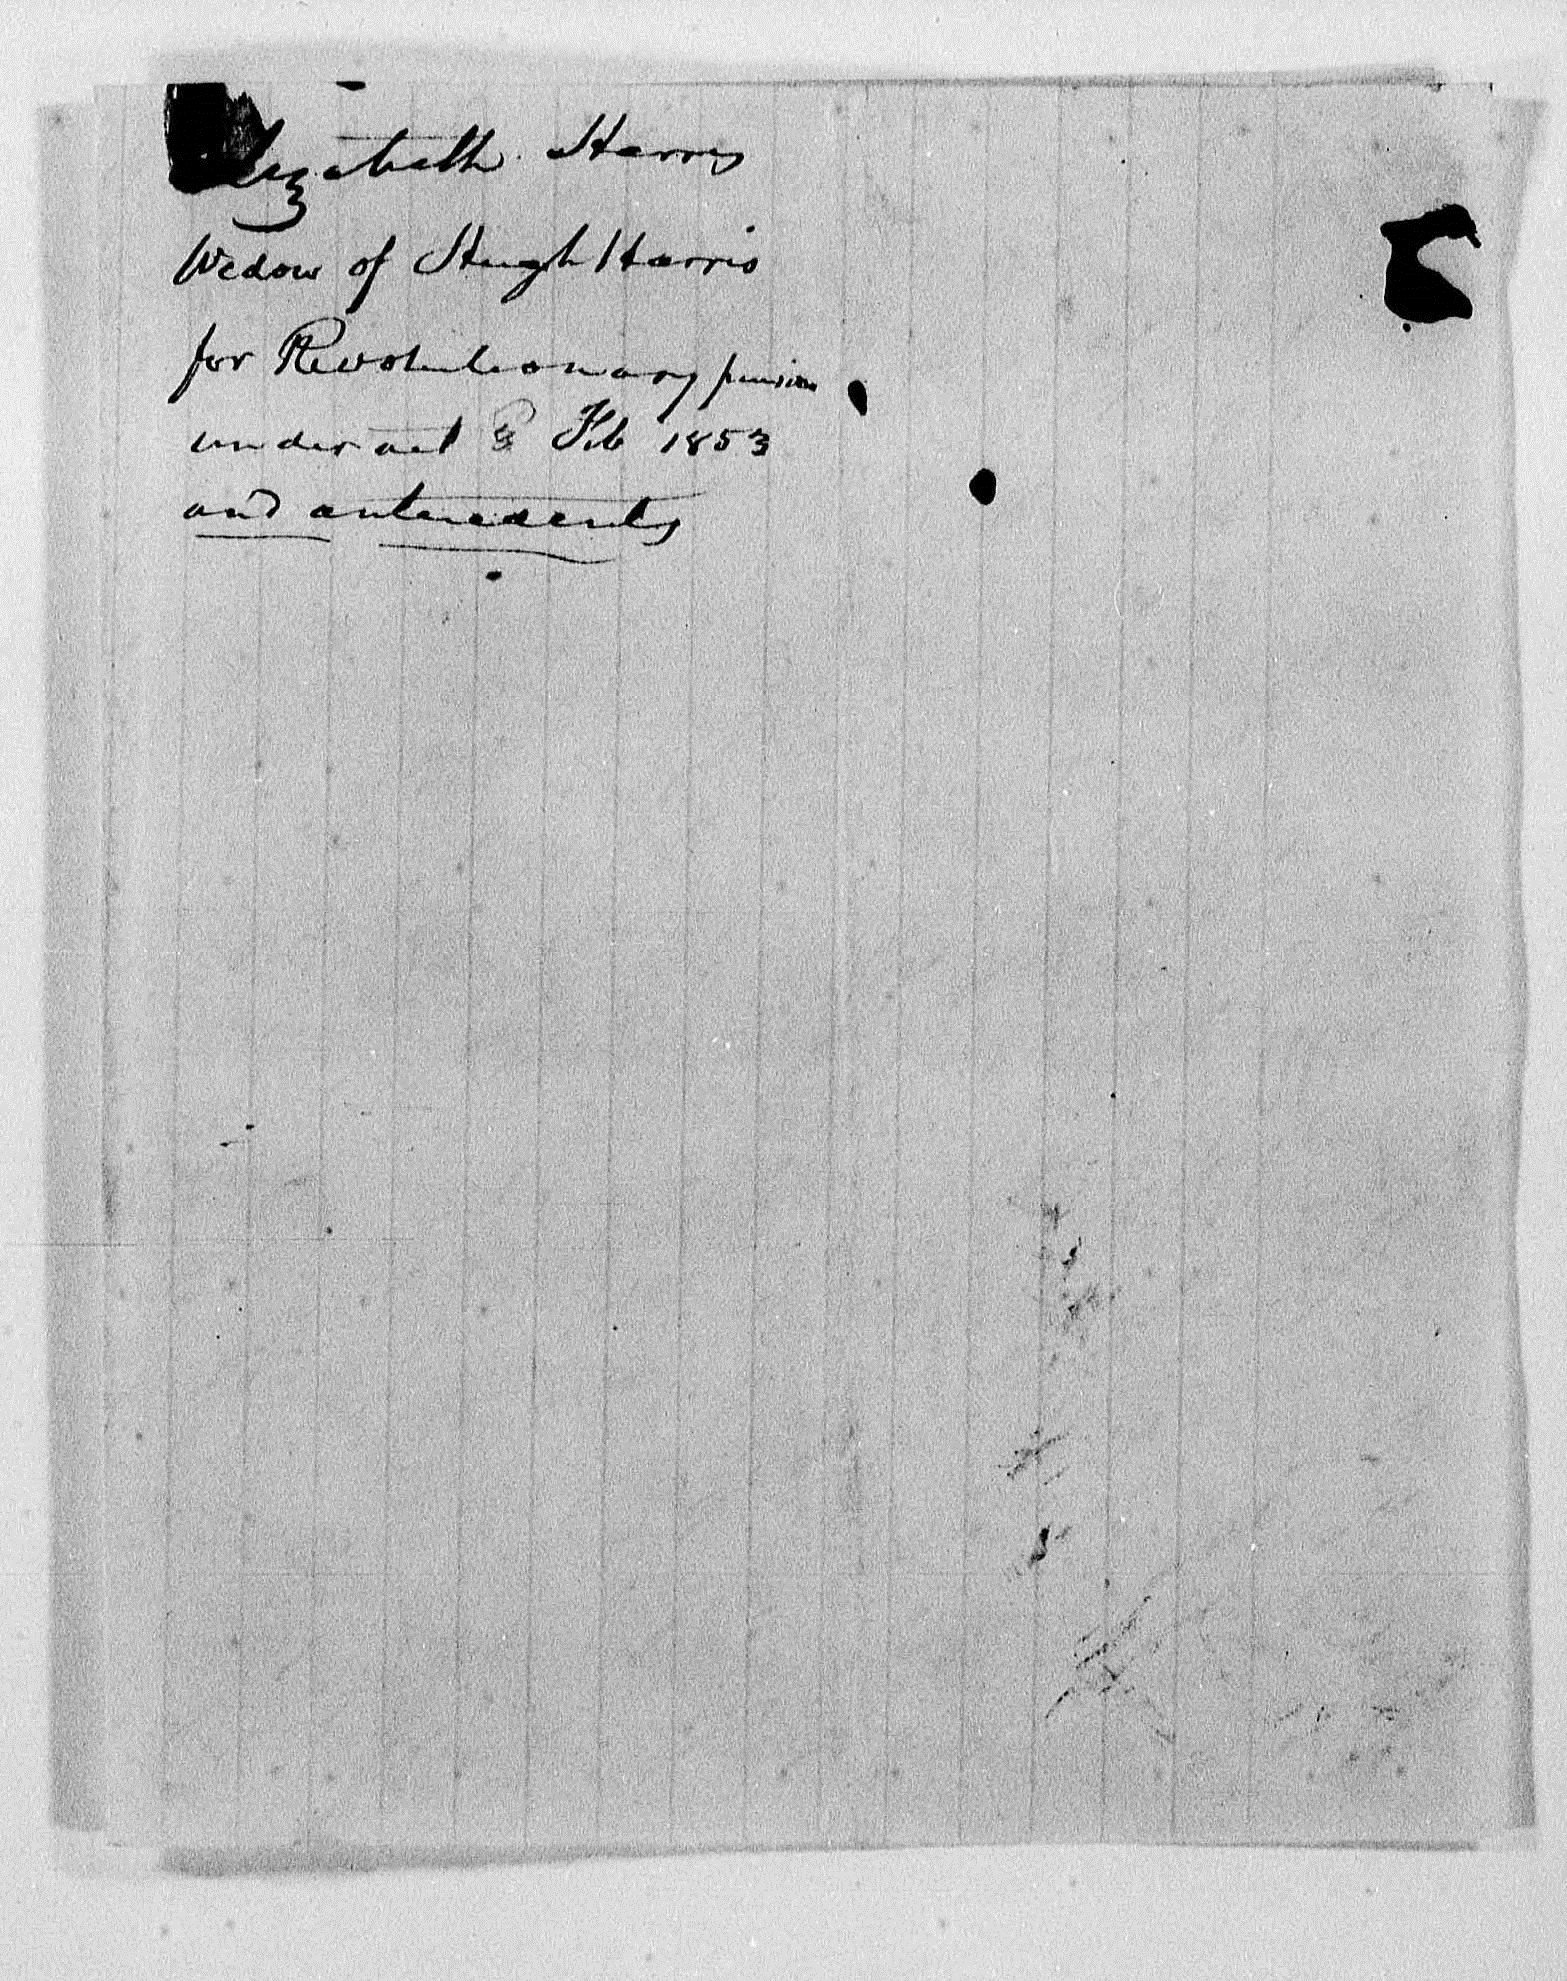 Elizabeth Harris
Widow of Hugh Harris
for Revolutionary pension
under act 3 Feb 1853
and antecedents